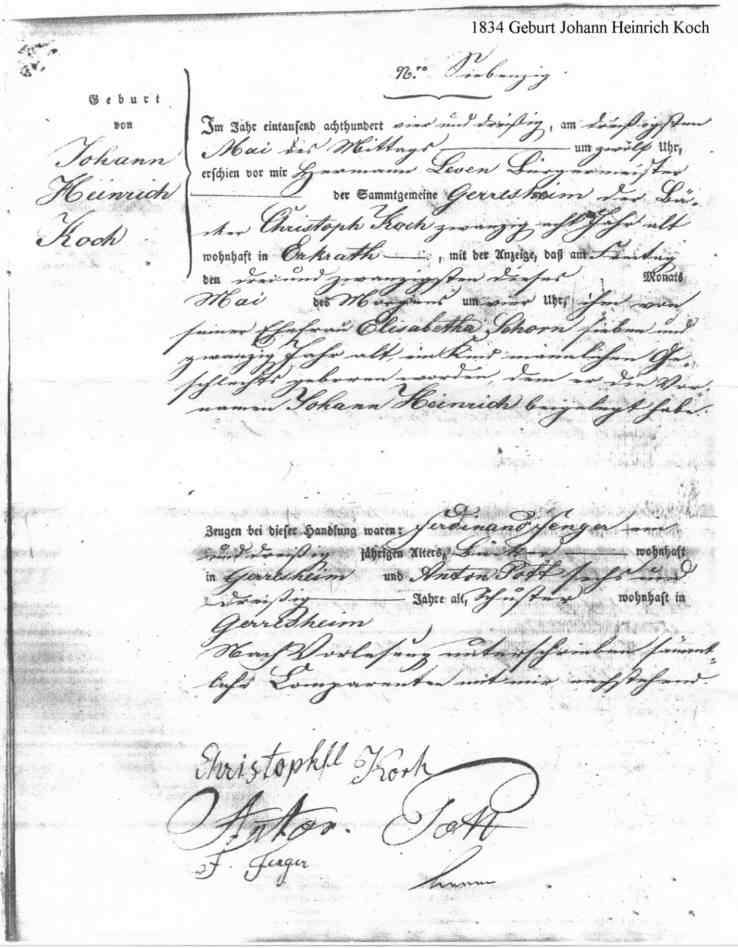 1834 Geburt Johann Heinrich Koch
Nro Siebenzig.
Geburt
von
Johann
Heinrich
Koch
Im Jahr eintausend achthundert vier und dreißig, am dreißigsten
Mai des Mittags um zwölf Uhr,
erschien vor mir Hermann Leven Bürgermeister
der Sammtgemeine Gerresheim der Bä-
cker Christoph Koch zwanzig acht Jahr alt
wohnhaft in Erkrath, mit der Anzeige, daß am Freitag
den drei und zwanzigsten dieses Monats
Mai des Morgens um vier Uhr, ihm von
seiner Ehefrau Elisabetha Schorn sieben und
zwanzig Jahr alt, ein Kind männlichen Ge-
schlechts geboren worden, dem er die Vor-
namen Johann Heinrich beigelegt habe.
Zeugen bei dieser Handlung waren: Ferdinand Jenger ein
und dreißig jährigen Alters, wohnhaft
in Gerresheim und Anton Pott sechs und
dreißig Jahre alt, Schuster wohnhaft in
Gerresheim
Nach Vorlesung unterschrieben sämmt-
liche Comparenten mit mir nachstehend.
Christophll Koch
Anton Pott
F. Jenger